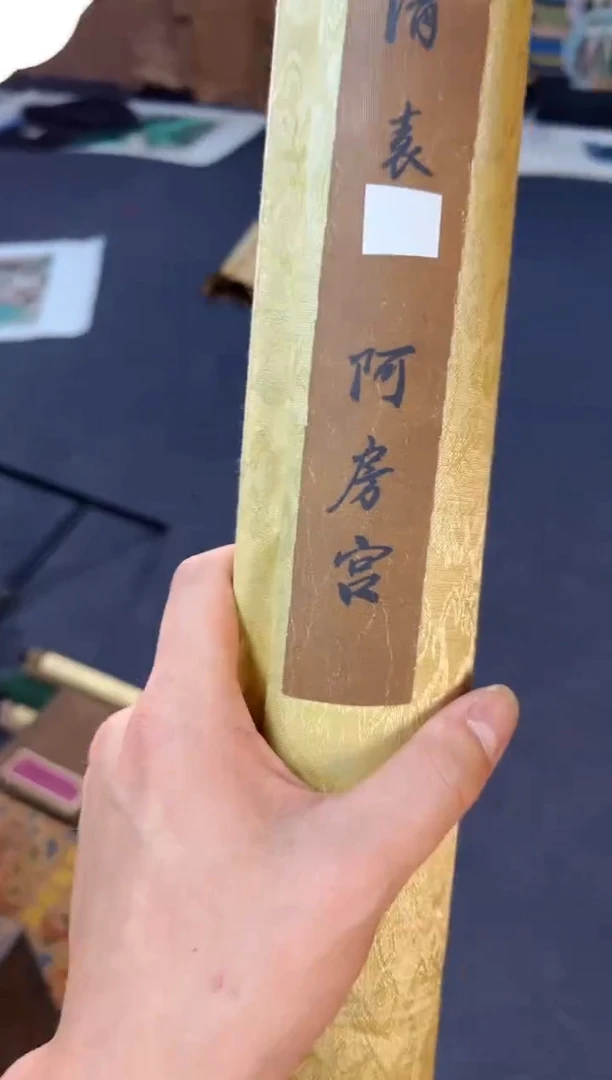 清袁 阿房宫